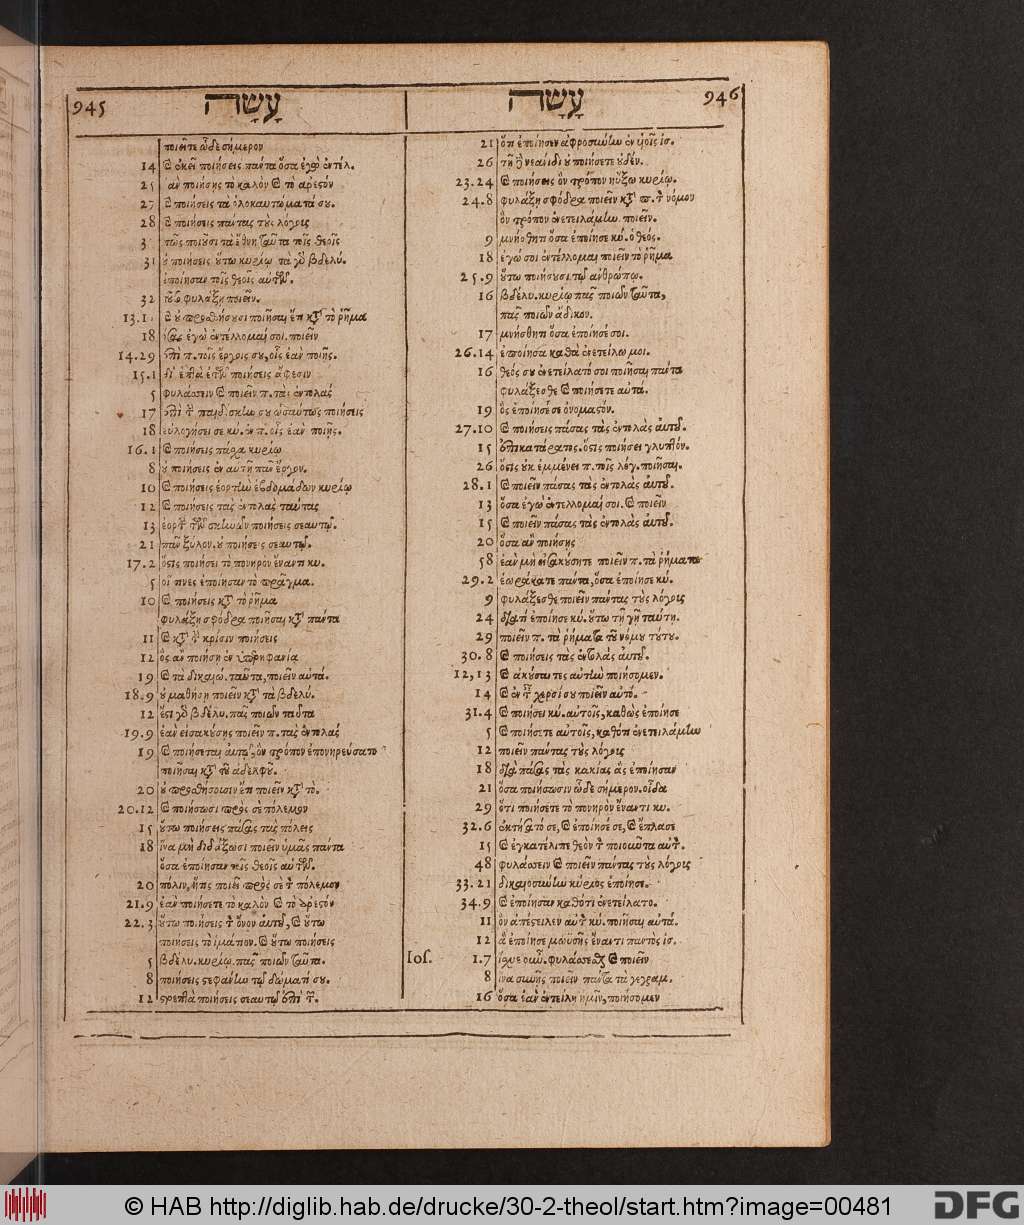 945
עָשָׂה
עָשָׂה
946
ποιεῖτε ὧδε σήμερον
14 & ἐκεῖ ποιήσεις πάντα ὅσα ἐγὼ ἐντέλ.
25 ἂν ποιήσῃς τὸ καλὸν & τὸ ἀρεστόν
27 & ποιήσεις τὰ ὁλοκαυτώματά σου.
28 & ποιήσεις πάντας τοὺς λόγοις
3 πῶς ποιοῦσι τὰ ἔθνη ταῦτα τοῖς θεοῖς
31 οὐ ποιήσεις οὕτω κυρίῳ τὰ γὸ βδελύ.
ἐποίησαν τοῖς θεοῖς αὐτῶν.
32 τοῦτο φυλάξῃ ποιεῖν.
13.1 & οὐ προσθήσουσι ποιῆσαι ἔτι κτ τὸ ῥῆμα
18 ἐγὼ ἐντέλλομαί σοι. ποιεῖν
14.29 ἐπὶ π. τοῖς ἔργοις σου, οἷς ἐὰν ποιῇς.
15.1 δι᾽ ἑπτὰ ἐτῶν ποιήσεις ἄφεσιν
5 φυλάσσειν & ποιεῖν π. τὰς ἐντολάς
17 παιδίσκην σου ὡσαύτως ποιήσεις
18 εὐλογήσει σε κύ. ἐν π. οἷς ἐὰν ποιῇς.
16.1 & ποιήσεις πάσχα κυρίῳ
8 οὐ ποιήσεις ἐν αὐτῇ πᾶν ἔργον.
10 & ποιήσεις ἑορτὴν ἑβδομάδων κυρίῳ
12 & ποιήσεις τὰς ἐντολὰς ταύτας
13 ἑορτὴν τῶν σκηνῶν ποιήσεις σεαυτῷ.
21 πᾶν ξύλον. οὐ ποιήσεις σεαυτῷ.
17.2 ὅστις ποιήσει τὸ πονηρὸν ἔναντι κυ.
5 οἵ τινες ἐποίησαν τὸ πρᾶγμα.
10 & ποιήσεις κτ τὸ ῥῆμα
φυλάξῃ σφόδρα ποιῆσαι κτ πάντα
11 & κτ τ κρίσιν ποιήσεις
12 ὃς ἂν ποιήσῃ ἐν ὑπερηφανία
19 & τὰ δικαιώ. ταῦτα, ποιεῖν αὐτά.
18.9 οὐ μαθήσῃ ποιεῖν κτ τὰ βδελύ.
12 ἔστι γὸ βδέλυ. πᾶς ποιῶν ταῦτα
19.9 ἐὰν εἰσακούσῃς ποιεῖν π. τὰς ἐντολάς
19 & ποιήσεται αὐτῷ, ὃν τρόπον ἐπονηρεύσατο
ποιῆσαι κτ τοῦ ἀδελφοῦ.
20 οὐ προσθήσουσιν ἔτι ποιεῖν κτ τὸ.
20.12 & ποιήσωσι πρὸς σὲ πόλεμον
15 οὕτω ποιήσεις πάσας τὰς πόλεις
18 ἵνα μὴ διδάξωσι ποιεῖν ὑμᾶς πάντα
ὅσα ἐποίησαν τοῖς θεοῖς αὐτῶν.
20 πόλιν, ἥτις ποιεῖ πρὸς σὲ τ πόλεμον
21.9 ἐὰν ποιήσετε τὸ καλὸν & τὸ ἀρεστόν
22.3 οὕτω ποιήσεις τ ὄνον αὐτοῦ, & οὕτω
ποιήσεις τὸ ἱμάτιον. & οὕτω ποιήσεις
5 βδέλυ. κυρίῳ. πᾶς ποιῶν ταῦτα.
8 ποιήσεις στεφάνην τῷ δώματί σου.
12 στρεπτὰ ποιήσεις σεαυτῷ ἐπὶ τ.
21 ὅτι ἐποίησεν ἀφροσύνην ἐν υἱοῖς ἰσ.
26 τῇ νεάνιδι οὐ ποιήσετε οὐδέν.
23.24 & ποιήσεις ὃν τρόπον ηὔξω κυρίῳ.
24.8 φυλάξῃ σφόδρα ποιεῖν κτ π. τ νόμον
ὃν τρόπον ἐνετειλάμην ποιεῖν.
9 μνήσθητι ὅσα ἐποίησε κύ. ὁ θεός.
18 ἐγώ σοι ἐντέλλομαι ποιεῖν τὸ ῥῆμα
25.9 οὕτω ποιήσουσι τῷ ἀνθρώπῳ.
16 βδέλυ. κυρίῳ πᾶς ποιῶν ταῦτα,
πᾶς ποιῶν ἄδικον.
17 μνήσθητι ὅσα ἐποίησέ σοι.
26.14 ἐποίησα καθὰ ἐνετείλω μοι.
16 θεός σου ἐνετείλατό σοι ποιῆσαι πάντα
φυλάξεσθε & ποιήσετε αὐτά.
19 ὃς ἐποίησέ σε ὀνομαστόν.
27.10 & ποιήσεις πάσας τὰς ἐντολὰς αὐτοῦ.
15 ἐπικατάρατος. ὅστις ποιήσει γλυπτόν.
26 ὅστις οὐκ ἐμμένει π. τοῖς λόγ. ποιῆσαι.
28.1 & ποιεῖν πάσας τὰς ἐντολὰς αὐτοῦ.
13 ὅσα ἐγὼ ἐντέλλομαί σοι. & ποιεῖν
15 & ποιεῖν πάσας τὰς ἐντολὰς αὐτοῦ.
20 ὅσα ἂν ποιήσῃς
58 ἐὰν μὴ εἰσακούσητε ποιεῖν π. τὰ ῥήματα
29.2 ἑωράκατε πάντα, ὅσα ἐποίησε κύ.
9 φυλάξεσθε ποιεῖν πάντας τοὺς λόγοις
24 διατί ἐποίησε κύ. οὕτω τῇ γῇ ταύτῃ.
29 ποιεῖν π. τὰ ῥήματα τοῦ νόμου τούτου.
30.8 & ποιήσεις τὰς ἐντολὰς αὐτοῦ.
12,13 & ἀκούσαντες αὐτὴν ποιήσομεν.
14 & ἐν τ χερσί σου ποιεῖν αὐτό.
31.4 & ποιήσει κύ. αὐτοῖς, καθὼς ἐποίησε
5 & ποιήσετε αὐτοῖς, καθότι ἐνετειλάμην
12 ποιεῖν πάντας τοὺς λόγοις
18 διὰ πάσας τὰς κακίας ἃς ἐποίησαν
21 ὅσα ποιήσωσιν ὧδε σήμερον. οἶδα
29 ὅτι ποιήσετε τὸ πονηρὸν ἔναντι κυ.
32.6 ἐκτήσατό σε, & ἐποίησέ σε, & ἔπλασε
15 & ἐγκατέλιπε θεὸν τ ποιοῦντα αὐτ.
48 φυλάσσειν & ποιεῖν πάντας τοὺς λόγοις
33.21 δικαιοσύνην κύριος ἐποίησε.
34.9 & ἐποίησαν καθότι ἐνετείλατο.
11 ὃν ἀπέστειλεν αὐτ κύ. ποιῆσαι αὐτά.
12 ἃ ἐποίησε μωϋσῆς ἔναντι παντὸς ἰσ.
Ios. 1.7 ἴσχυε οὖν. φυλάσσεσθαι & ποιεῖν
8 ἵνα συνῇς ποιεῖν πάντα τὰ γεγραμ.
16 ὅσα ἐὰν ἐντείλῃ ἡμῖν, ποιήσομεν
© HAB http://diglib.hab.de/drucke/30-2-theol/start.htm?image=00481
DFG